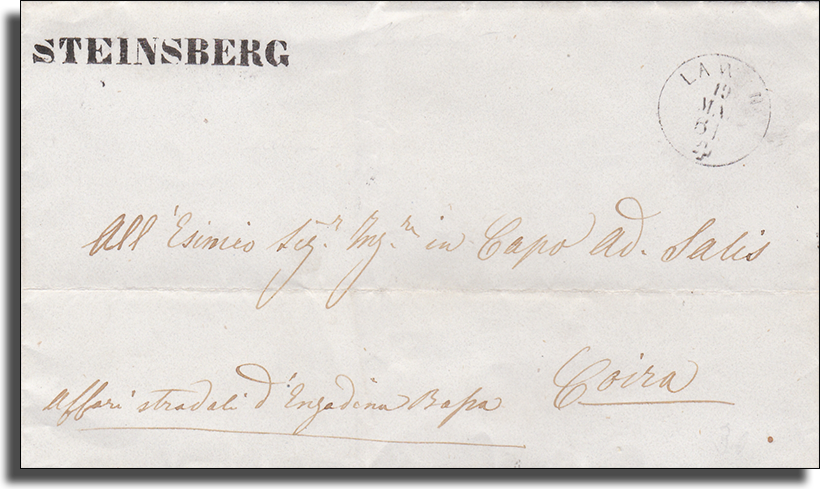 STEINSBERG
LAVIN
19
MA
61
All'Esimio Sigr. Ingre. in Capo Ad. Salis
Coira
Affari stradali d'Engadina Bassa